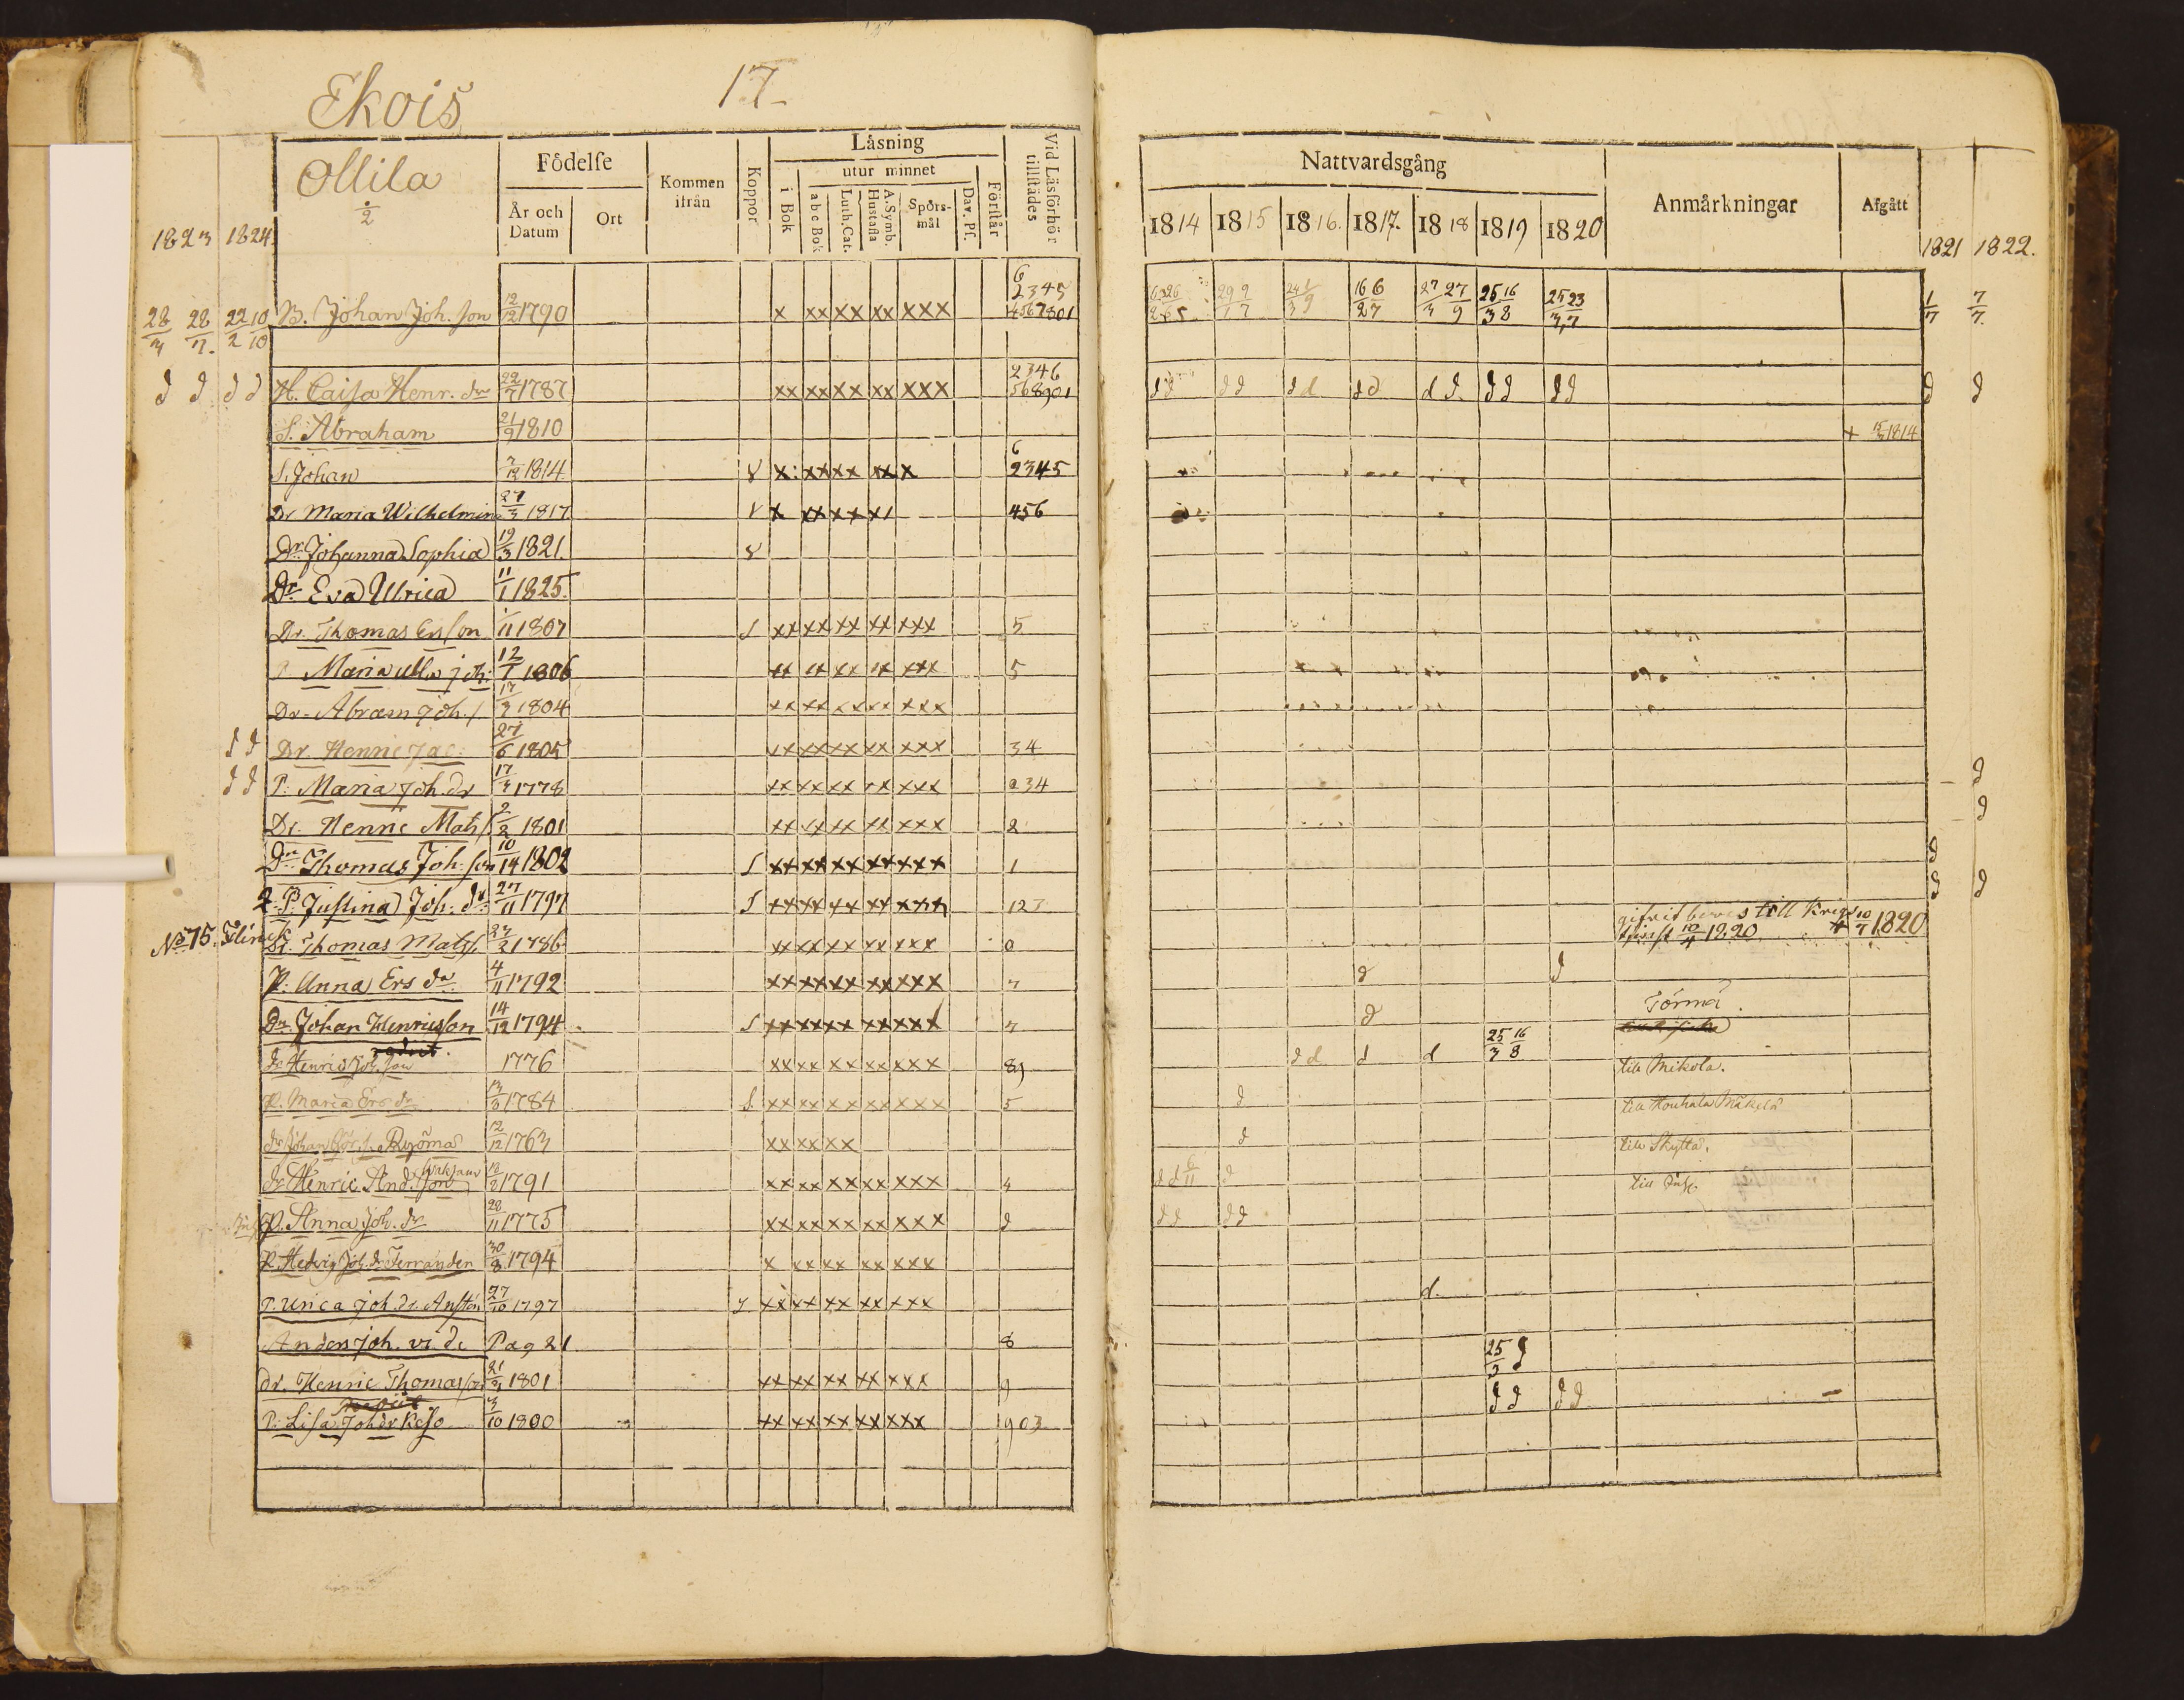 Ekois
17
Ollila
2
1823 1824
Födelse
År och Datum
Ort
Kommen ifrån
Koppor
Läsning
i Bok
utur minnet
abc Bok
Luth. Cat.
A. Symb. Hustafla
Spörsmål
Dav. Ps.
Förstår
Vid Läsförhör tillstädes
Nattvardsgång
1814 1815 1816. 1817. 1818 1819 1820
Anmärkningar
Afgått
1821 1822.
28/3 28/7. 22/2 10/10 B. Johan Joh. son 12/12 1790 x xx xx xx xxx 6 2345 4567801 29/1 9/7 16/2 6/7 27/3 27/9 25/3 16/8 25/3 23/7 1/7 7/7.
d d d d H. Caisa Henr. dr 22/7 1787 xx xx xx xx xxx 2346 568901 dd dd dd dd d d. dd dd d d
S. Abraham 21/9 1810 + 15/3 1814
S. Johan 7/12 1814 x xx xx xx x 6 2345
Dr Maria Wilhelmina 27/3 1817 x xx xx x 456
Dr. Johanna Sophia 19/3 1821.
Dr Eva Ulrica 11/1 1825.
Dr. Thomas Ersson 1/11 1807 xx xx xx xx xxx 5
Maria Ulla Joh. 12/7 1806 xx xx xx xx xxx 5
Dr. Abram Joh. s 17/3 1804 xx xx xx xx xxx
d d Dr. Henric Jac: 27/6 1805 xx xx xx xx xxx 34
d d P. Maria Joh. dr 17/3 1778 xx xx xx xx xxx 234 d
Dr. Henric Mats s 9/2 1801 xx xx xx xx xxx 2 d
Dr Thomas Joh. son 10/14 1802 S xx xx xx xx xxx 1 d
2. P. Justina Joh. dr 27/11 1797 S xx xx xx xx xxx 123 d d
No 75. Flinck Dr. Thomas Mats s. 27/2 1786 xx xx xx xx xxx 0 bevis till 10/4 1820 + 10/7 1820
P. Anna Ers dr 4/11 1792 xx xx xx xx xxx 7 d d
Dr. Johan Henricsson 14/12 1794 S xx xx xx xx xxx 7 d Törmä.
dr Henric Joh. son 1776 xx xx xx xx xxx 89 d d d d 25/3 16/8 till Mikola.
P. Maria Ers dr 13/3 1784 S. xx xx xx xx xxx 5 d till Kouhala Mäkelä
dr Johan Ryömä 12/12 1763 xx xx xx d till Skyttä.
dr Henric And. son 12/2 1791 xx xx xx xx xxx 4 d d 6/11 d till
P. Anna Joh. dr 28/11 1775 xx xx xx xx xxx d d d d d
P. Hedvig Joh. dr Terranden 30/8 1794 x xx xx xx xxx
P. Ulrica Joh. dr. Anstén 27/10 1797 xx xx xx xx xxx d.
Anders Joh. vide Pag 21 8 25/3 d
dr. Henric Thomasson 21/3 1801 xx xx xx xx xxx 9 d d d d
P. Lisa Joh. dr Keso 3/10 1800 xx xx xx xx xxx 903